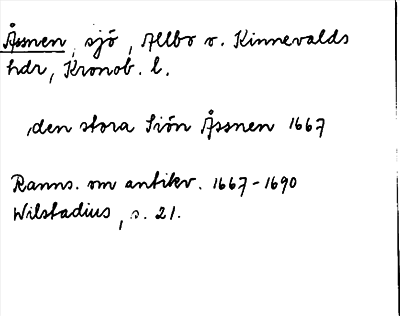 Åsnen, sjö, Allbo o. Kinnevalds
hdr, Kronob. l.
,den stora Siön Åssnen 1667
Ranns. om antikv. 1667-1690
Wilstadius, s. 21.